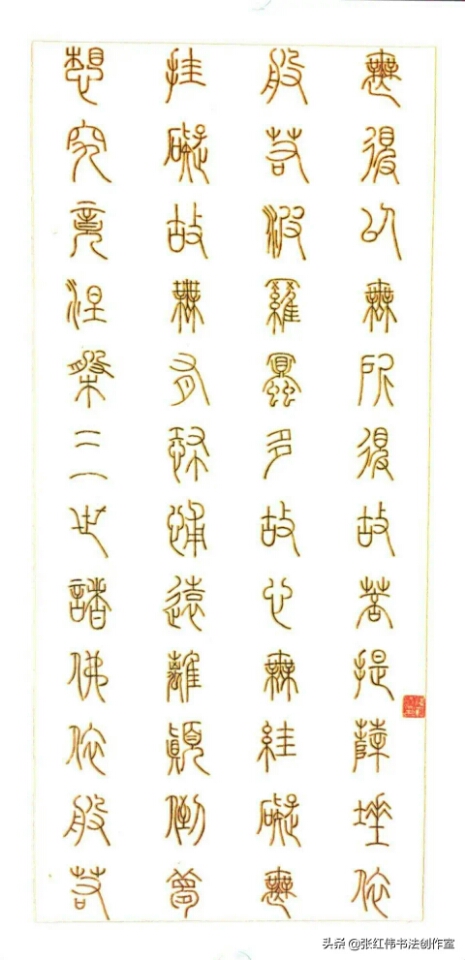 無得以無所得故菩提薩埵依
般若波羅蜜多故心無絓礙無
挂礙故無有恐怖遠離顛倒夢
想究竟涅槃三世諸佛依般若
头条 @张红伟书法创作室